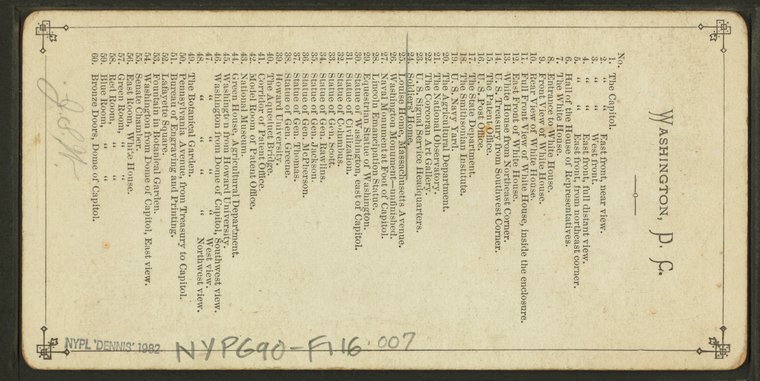 WASHINGTON, D. C.
No.
1. The Capitol.
2. " " East front, near view.
3. " " West front.
4. " " East front, full distant view.
5. " " East front, from northeast corner.
6. Hall of the House of Representatives.
7. The White House.
8. Entrance to White House.
9. Front View of White House.
10. Rear View of White House.
11. Full Front View of White House, inside the enclosure.
12. East Front of White House.
13. White House from Northeast Corner.
14. U. S. Treasury from Southwest Corner.
15. The Patent Office.
16. U. S. Post Office.
17. The State Department.
18. The Smithsonian Institute.
19. U. S. Navy Yard.
20. The Agricultural Department.
21. The National Observatory.
22. The Corcoran Art Gallery.
23. U. S. Signal Service Headquarters.
24. Soldiers' Home.
25. Louise Home, Massachusetts Avenue.
26. Washington Monument—unfinished.
27. Naval Monument at Foot of Capitol.
28. Lincoln Emancipation Statue.
29. Equestrian Statue of Washington.
30. Statue of Washington, east of Capitol.
31. Statue of Civilization.
32. Statue of Columbus.
33. Statue of Gen. Scott.
34. Statue of Gen. Rawlins.
35. Statue of Gen. Jackson.
36. Statue of Gen. McPherson.
37. Statue of Gen. Thomas.
38. Statue of Gen. Greene.
39. Howard University.
40. The Aqueduct Bridge.
41. Corridor of Patent Office.
42. Model Room of Patent Office.
43. National Museum.
44. Green House, Agricultural Department.
45. Washington from Howard University.
46. Washington from Dome of Capitol, Southwest view.
47. " " " " West view.
48. " " " " Northwest view.
49. The Botanical Garden.
50. Pennsylvania Avenue, from Treasury to Capitol.
51. Bureau of Engraving and Printing.
52. Lafayette Square.
53. Fountain in Botanical Garden.
54. Washington from Dome of Capitol, East view.
55. Senate Chamber.
56. East Room, White House.
57. Green Room, " "
58. Red Room, " "
59. Blue Room, " "
60. Bronze Doors, Dome of Capitol.
NYPL 'DENNIS' 1982
NYPG90-F116 .007